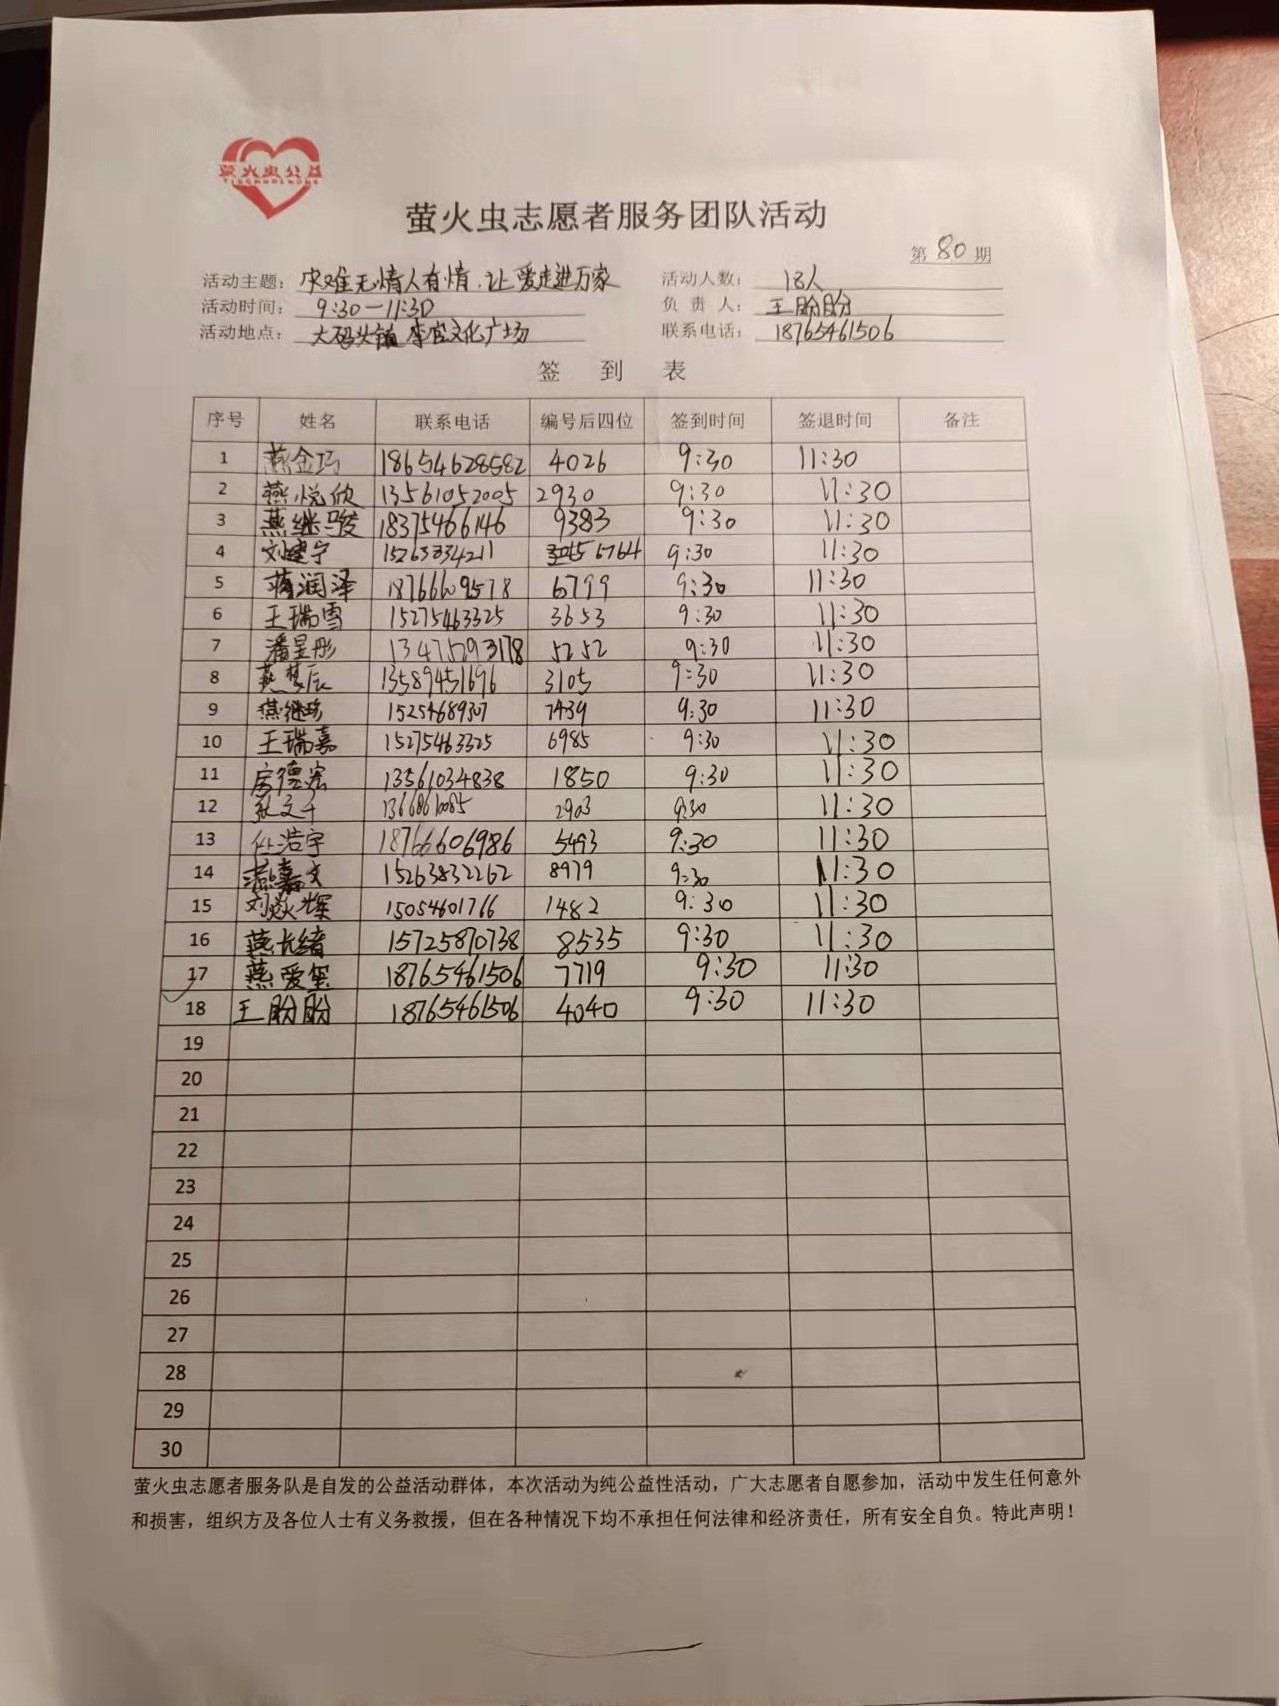 萤火虫公益
萤火虫志愿者服务团队活动
第 80 期
活动主题：灾难无情人有情，让爱走进万家 活动人数：18人
活动时间：9:30—11:30 负责人：王盼盼
活动地点：大码头镇李官文化广场 联系电话：18765461506
签 到 表
序号 姓名 联系电话 编号后四位 签到时间 签退时间 备注
1 燕金巧 18654628582 4026 9:30 11:30
2 燕悦欣 13561052005 2930 9:30 11:30
3 燕继骏 18375466146 9383 9:30 11:30
4 刘建宁 15263834211 6764 9:30 11:30
5 蒋润泽 18766609578 6799 9:30 11:30
6 王瑞雪 15275463325 3653 9:30 11:30
7 潘呈彤 13475293178 5252 9:30 11:30
8 燕梦辰 13589451696 3105 9:30 11:30
9 燕继珍 15254689307 7439 9:30 11:30
10 王瑞嘉 15275463325 6985 9:30 11:30
11 房德宏 13561034838 1850 9:30 11:30
12 张文千 13668610085 2903 9:30 11:30
13 任浩宇 18766606986 5493 9:30 11:30
14 燕嘉文 15263832262 8979 9:30 11:30
15 刘焱辉 15054601766 1482 9:30 11:30
16 燕长绪 15725870738 8535 9:30 11:30
17 燕爱玺 18765461506 7719 9:30 11:30
18 王盼盼 18765461506 4040 9:30 11:30
19
20
21
22
23
24
25
26
27
28
29
30
萤火虫志愿者服务队是自发的公益活动群体，本次活动为纯公益性活动，广大志愿者自愿参加，活动中发生任何意外
和损害，组织方及各位人士有义务救援，但在各种情况下均不承担任何法律和经济责任，所有安全自负。特此声明！